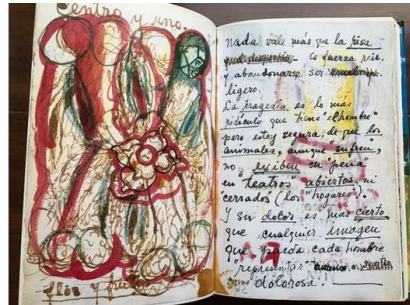 Centro y uno.
flor y
Nada vale más que la risa
Es fuerza reir
y abandonarse. ser
ligero.
La tragedia es lo mas
ridículo que tiene "el hombre"
pero estoy segura, de que los
animales, aunque sufren,
no exiben su "pena"
en "teatros" abiertos, ni
cerrados (los "hogares").
Y su dolor es mas cierto
que cualquier imagen
que pueda cada hombre
representar
como dolorosa.